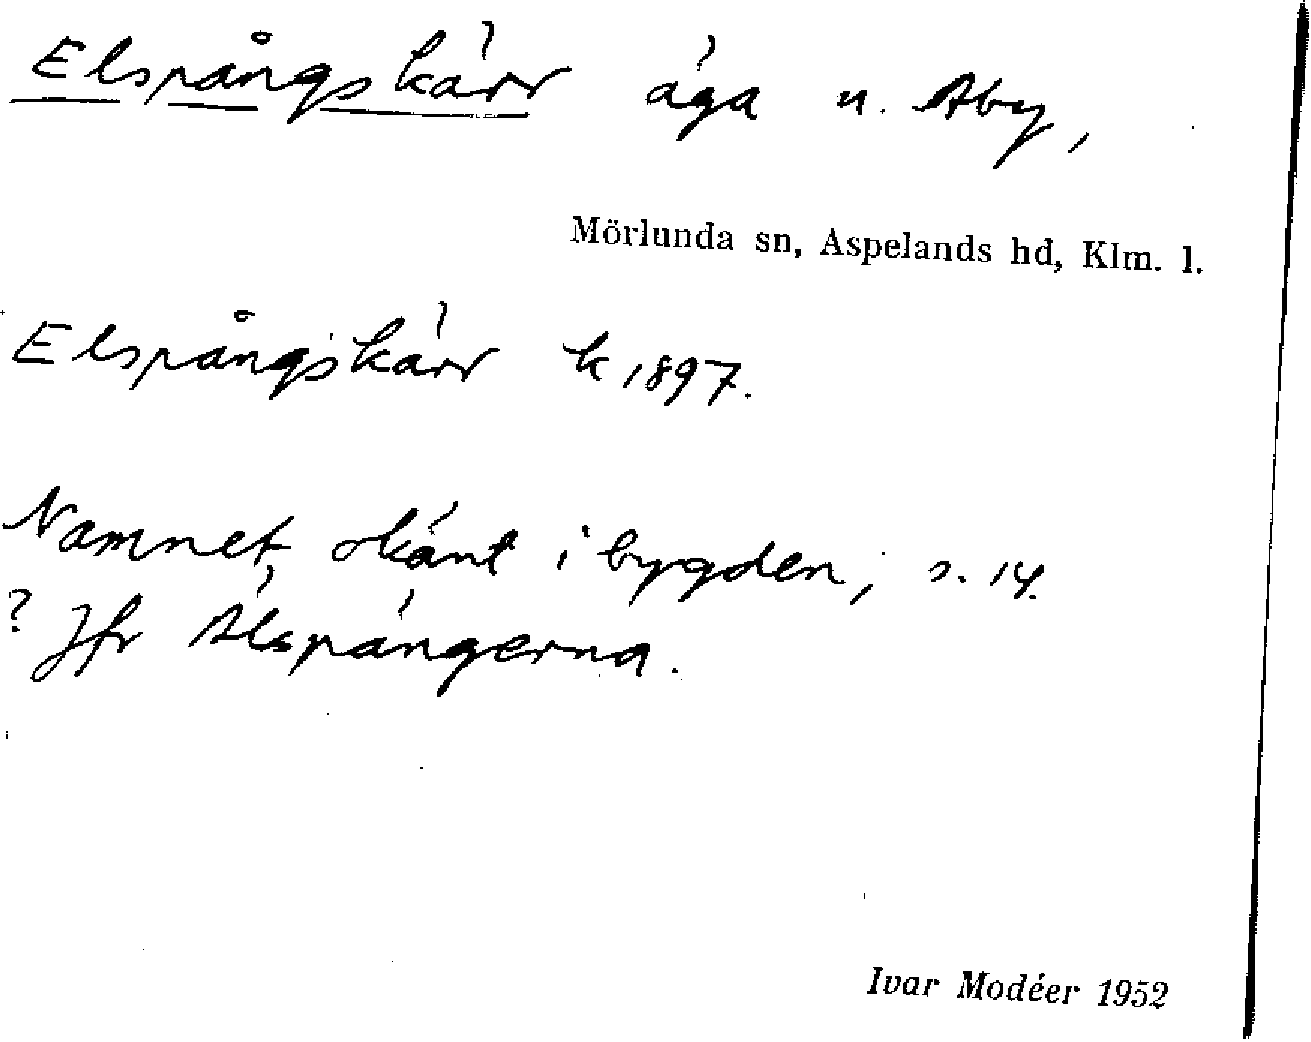 Elspångskärr äga u. Åby,
Mörlunda sn, Aspelands hd, Klm. l.
Elspångskärr k 1897.
Namnet okänt i bygden, s. 14.
? Jfr Älspängerna.
Ivar Modéer 1952